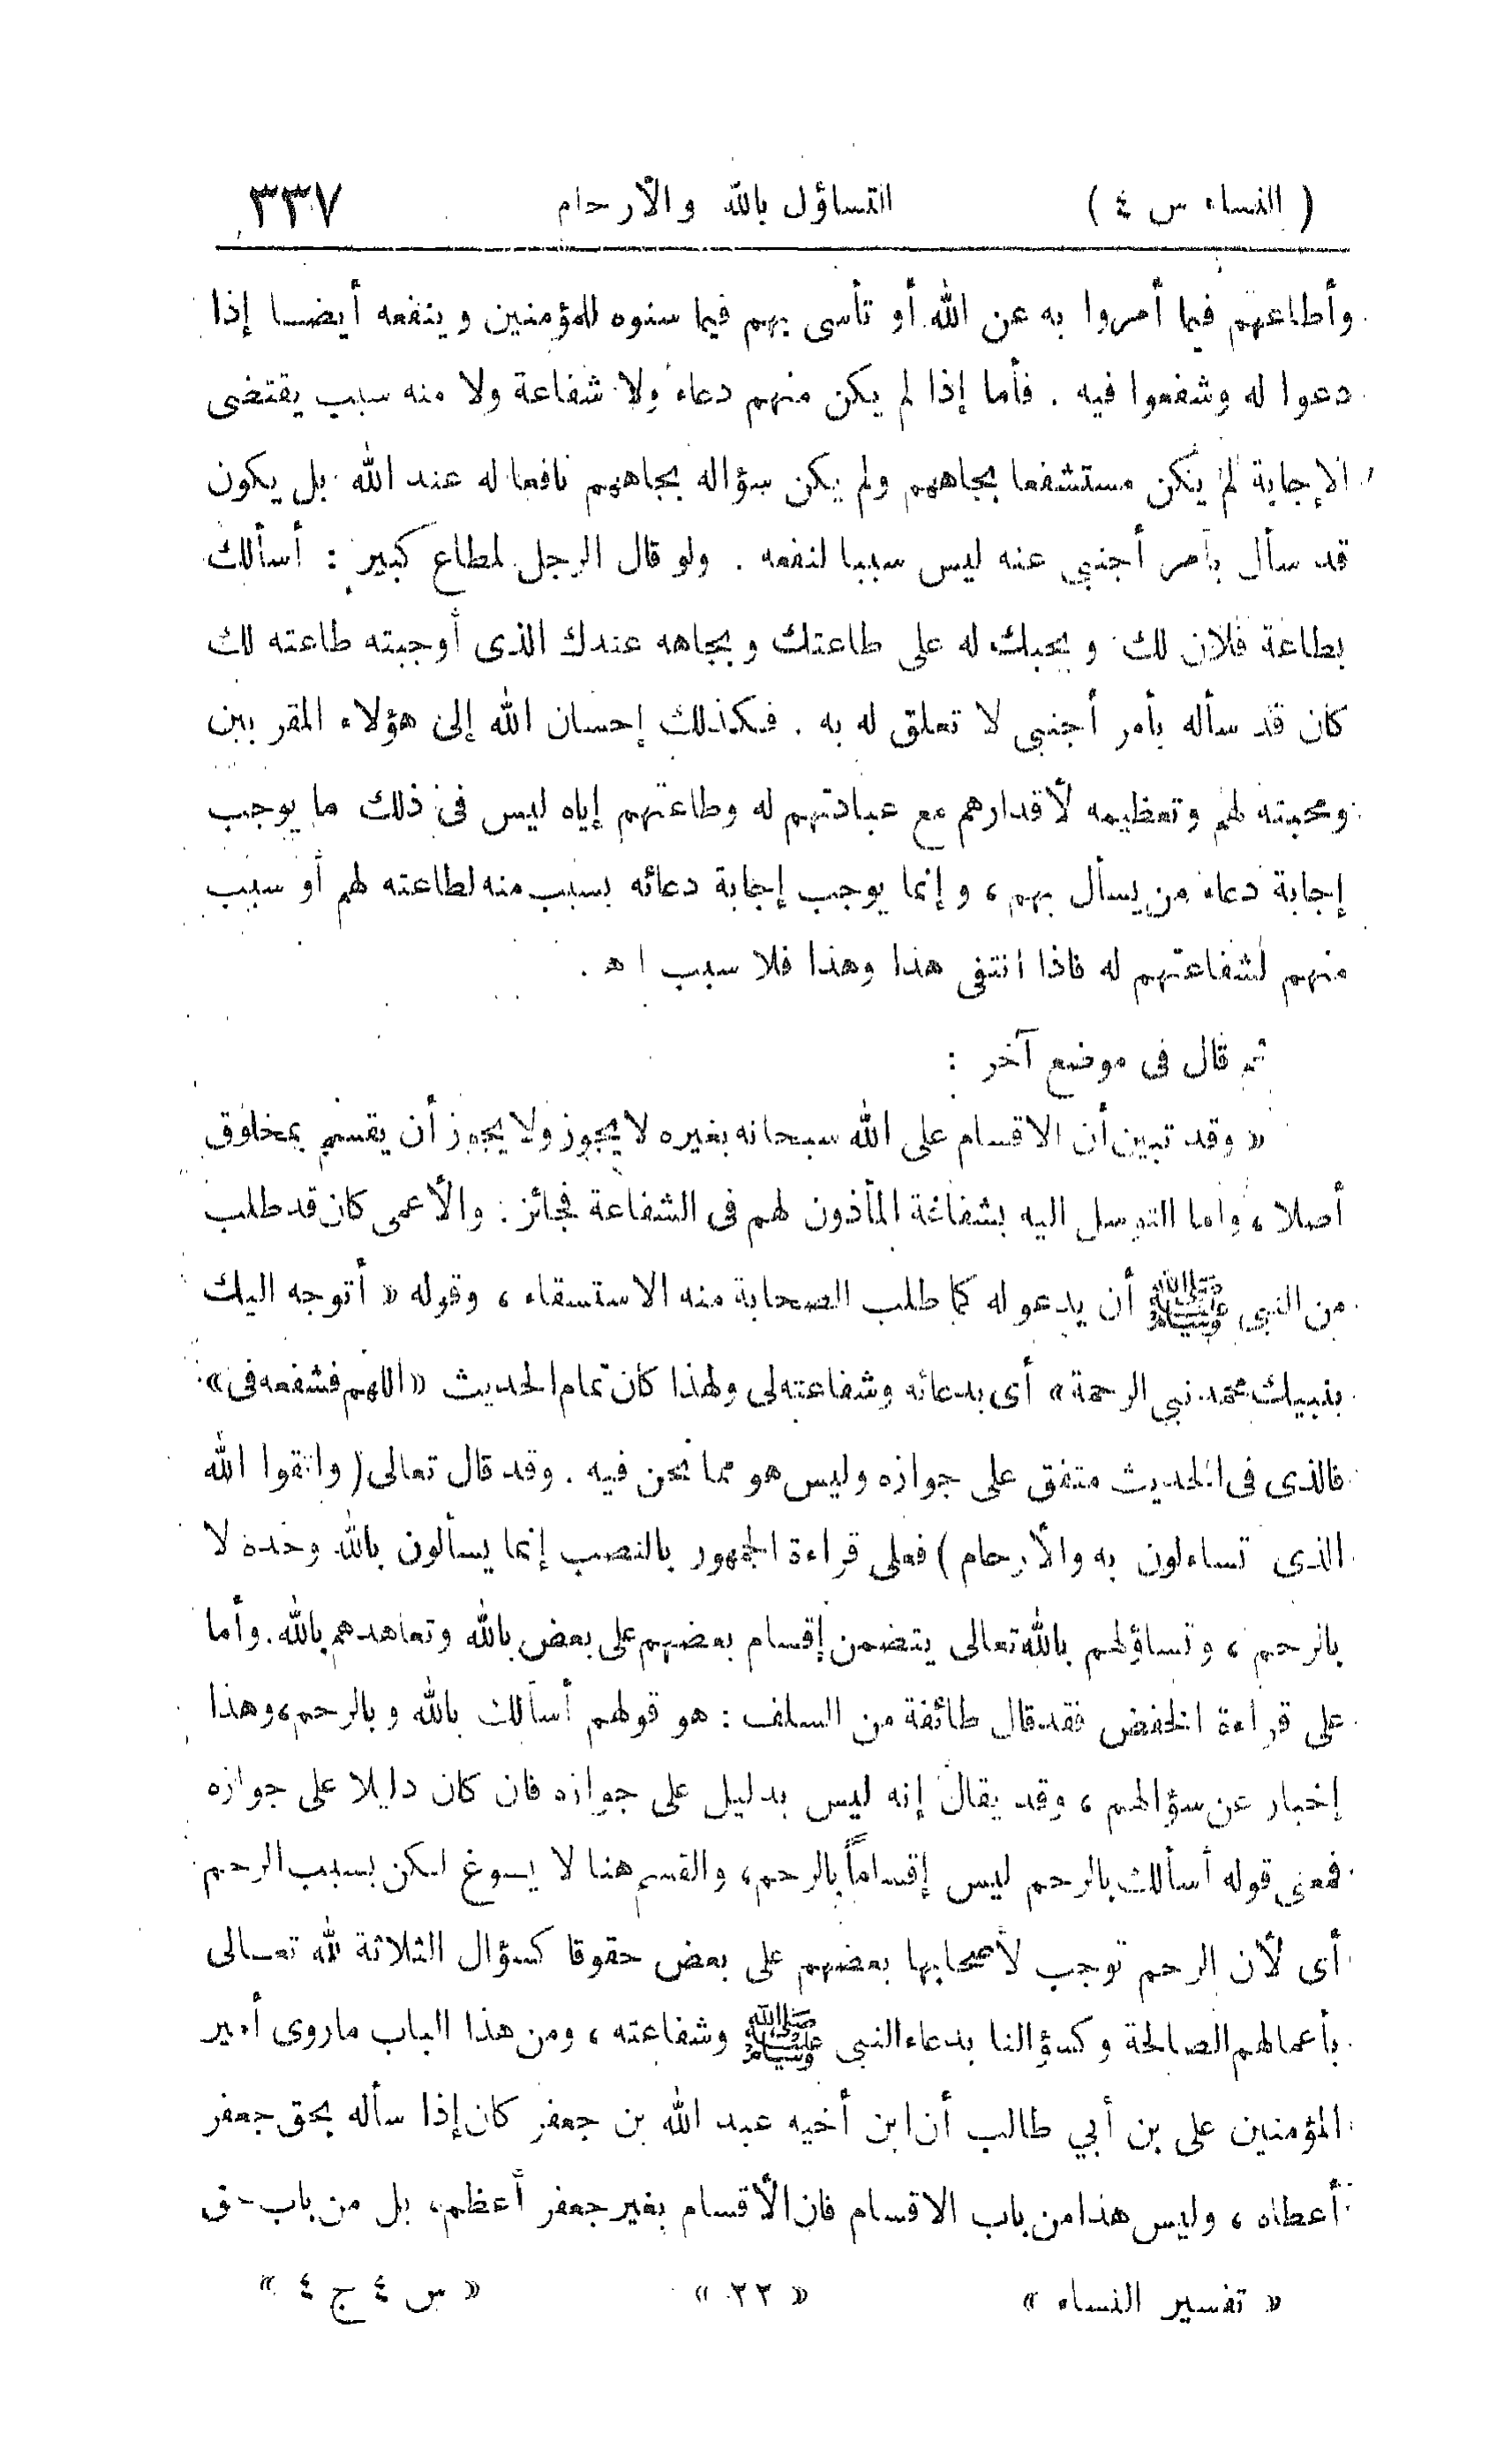 ( النساء س ٤ ) التساؤل بالله والأرحام ٣٣٧
وأطاعهم فيما أمروا به عن الله أو تأسى بهم فيما سنوه للمؤمنين وينفعه أيضا إذا
دعوا له وشفعوا فيه . فأما إذا لم يكن منهم دعاء ولا شفاعة ولا منه سبب يقتضى
الإجابة لم يكن مستشفعا بجاههم ولم يكن سؤاله بجاههم نافعا له عند الله بل يكون
قد سأل بأمر أجنبي عنه ليس سببا لنفعه . ولو قال الرجل لمطاع كبير : أسألك
بطاعة فلان لك وبحبك له على طاعتك وبجاهه عندك الذى أوجبته طاعته لك
كان قد سأله بأمر أجنبى لا تعلق له به . فكذلك إحسان الله إلى هؤلاء المقربين
ومحبته لهم وتعظيمه لأقدارهم مع عبادتهم له وطاعتهم إياه ليس فى ذلك ما يوجب
إجابة دعاء من يسأل بهم ، وإنما يوجب إجابة دعائه بسبب منه لطاعته لهم أو سبب
منهم لشفاعتهم له فاذا انتفى هذا وهذا فلا سبب اه .
ثم قال فى موضع آخر :
« وقد تبين أن الاقسام على الله سبحانه بغيره لا يجوز ولا يجوز أن يقسم بمخلوق
أصلا ، واما التوسل اليه بشفاعة المأذون لهم فى الشفاعة فجائز : والأعمى كان قد طلب
من النبى ﷺ أن يدعو له كما طلب الصحابة منه الاستسقاء ، وقوله « أتوجه اليك
بنبيك محمد نبي الرحمة » أى بدعائه وشفاعته لى ولهذا كان تمام الحديث « اللهم فشفعه فى »
فالذى فى الحديث متفق على جوازه وليس هو مما نحن فيه . وقد قال تعالى ( واتقوا الله
الذى تساءلون به والأرحام ) فعلى قراءة الجمهور بالنصب إنما يسألون بالله وحده لا
بالرحم ، وتساؤلهم بالله تعالى يتضمن إقسام بعضهم على بعض بالله وتعاهدهم بالله . وأما
على قراءة الخفض فقد قال طائفة من السلف : هو قولهم أسألك بالله وبالرحم ، وهذا
إخبار عن سؤالهم ، وقد يقال إنه ليس بدليل على جوازه فان كان دليلا على جوازه
فمعنى قوله أسألك بالرحم ليس إقساماً بالرحم ، والقسم هنا لا يسوغ لكن بسبب الرحم
أى لأن الرحم توجب لأصحابها بعضهم على بعض حقوقا كسؤال الثلاثة لله تعالى
بأعمالهم الصالحة وكسؤالنا بدعاء النبى ﷺ وشفاعته ، ومن هذا الباب ماروى أمير
المؤمنين على بن أبي طالب أن ابن أخيه عبد الله بن جعفر كان إذا سأله بحق جعفر
أعطاه ، وليس هذا من باب الاقسام فان الأقسام بغير جعفر أعظم ، بل من باب حق
« تفسير النساء » « ٢٢ » « س ٤ ج ٤ »